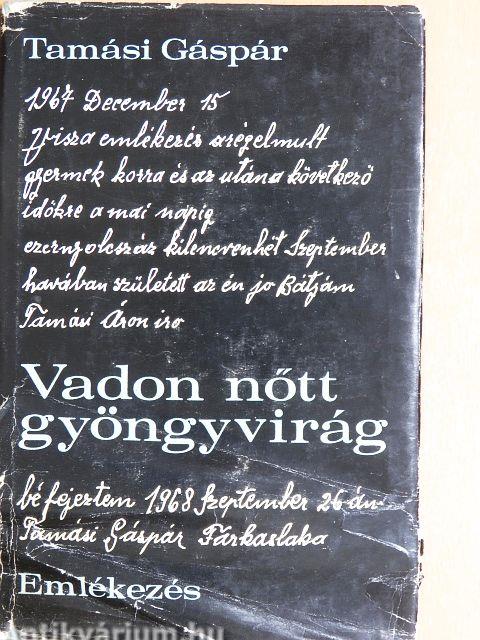 Tamási Gáspár
1967 December 15
Visza emlékezés arégelmult
gyermek korra és az utána következő
időkre a mai napig
ezernyolcszáz kilencvenhét Szeptember
havában született az én jo Bátyám
Tamási Áron iro
Vadon nőtt
gyöngyvirág
béfejeztem 1968 Szeptember 26 án
Tamási Gáspár Fárkaslaka
Emlékezés
antikvárium.hu